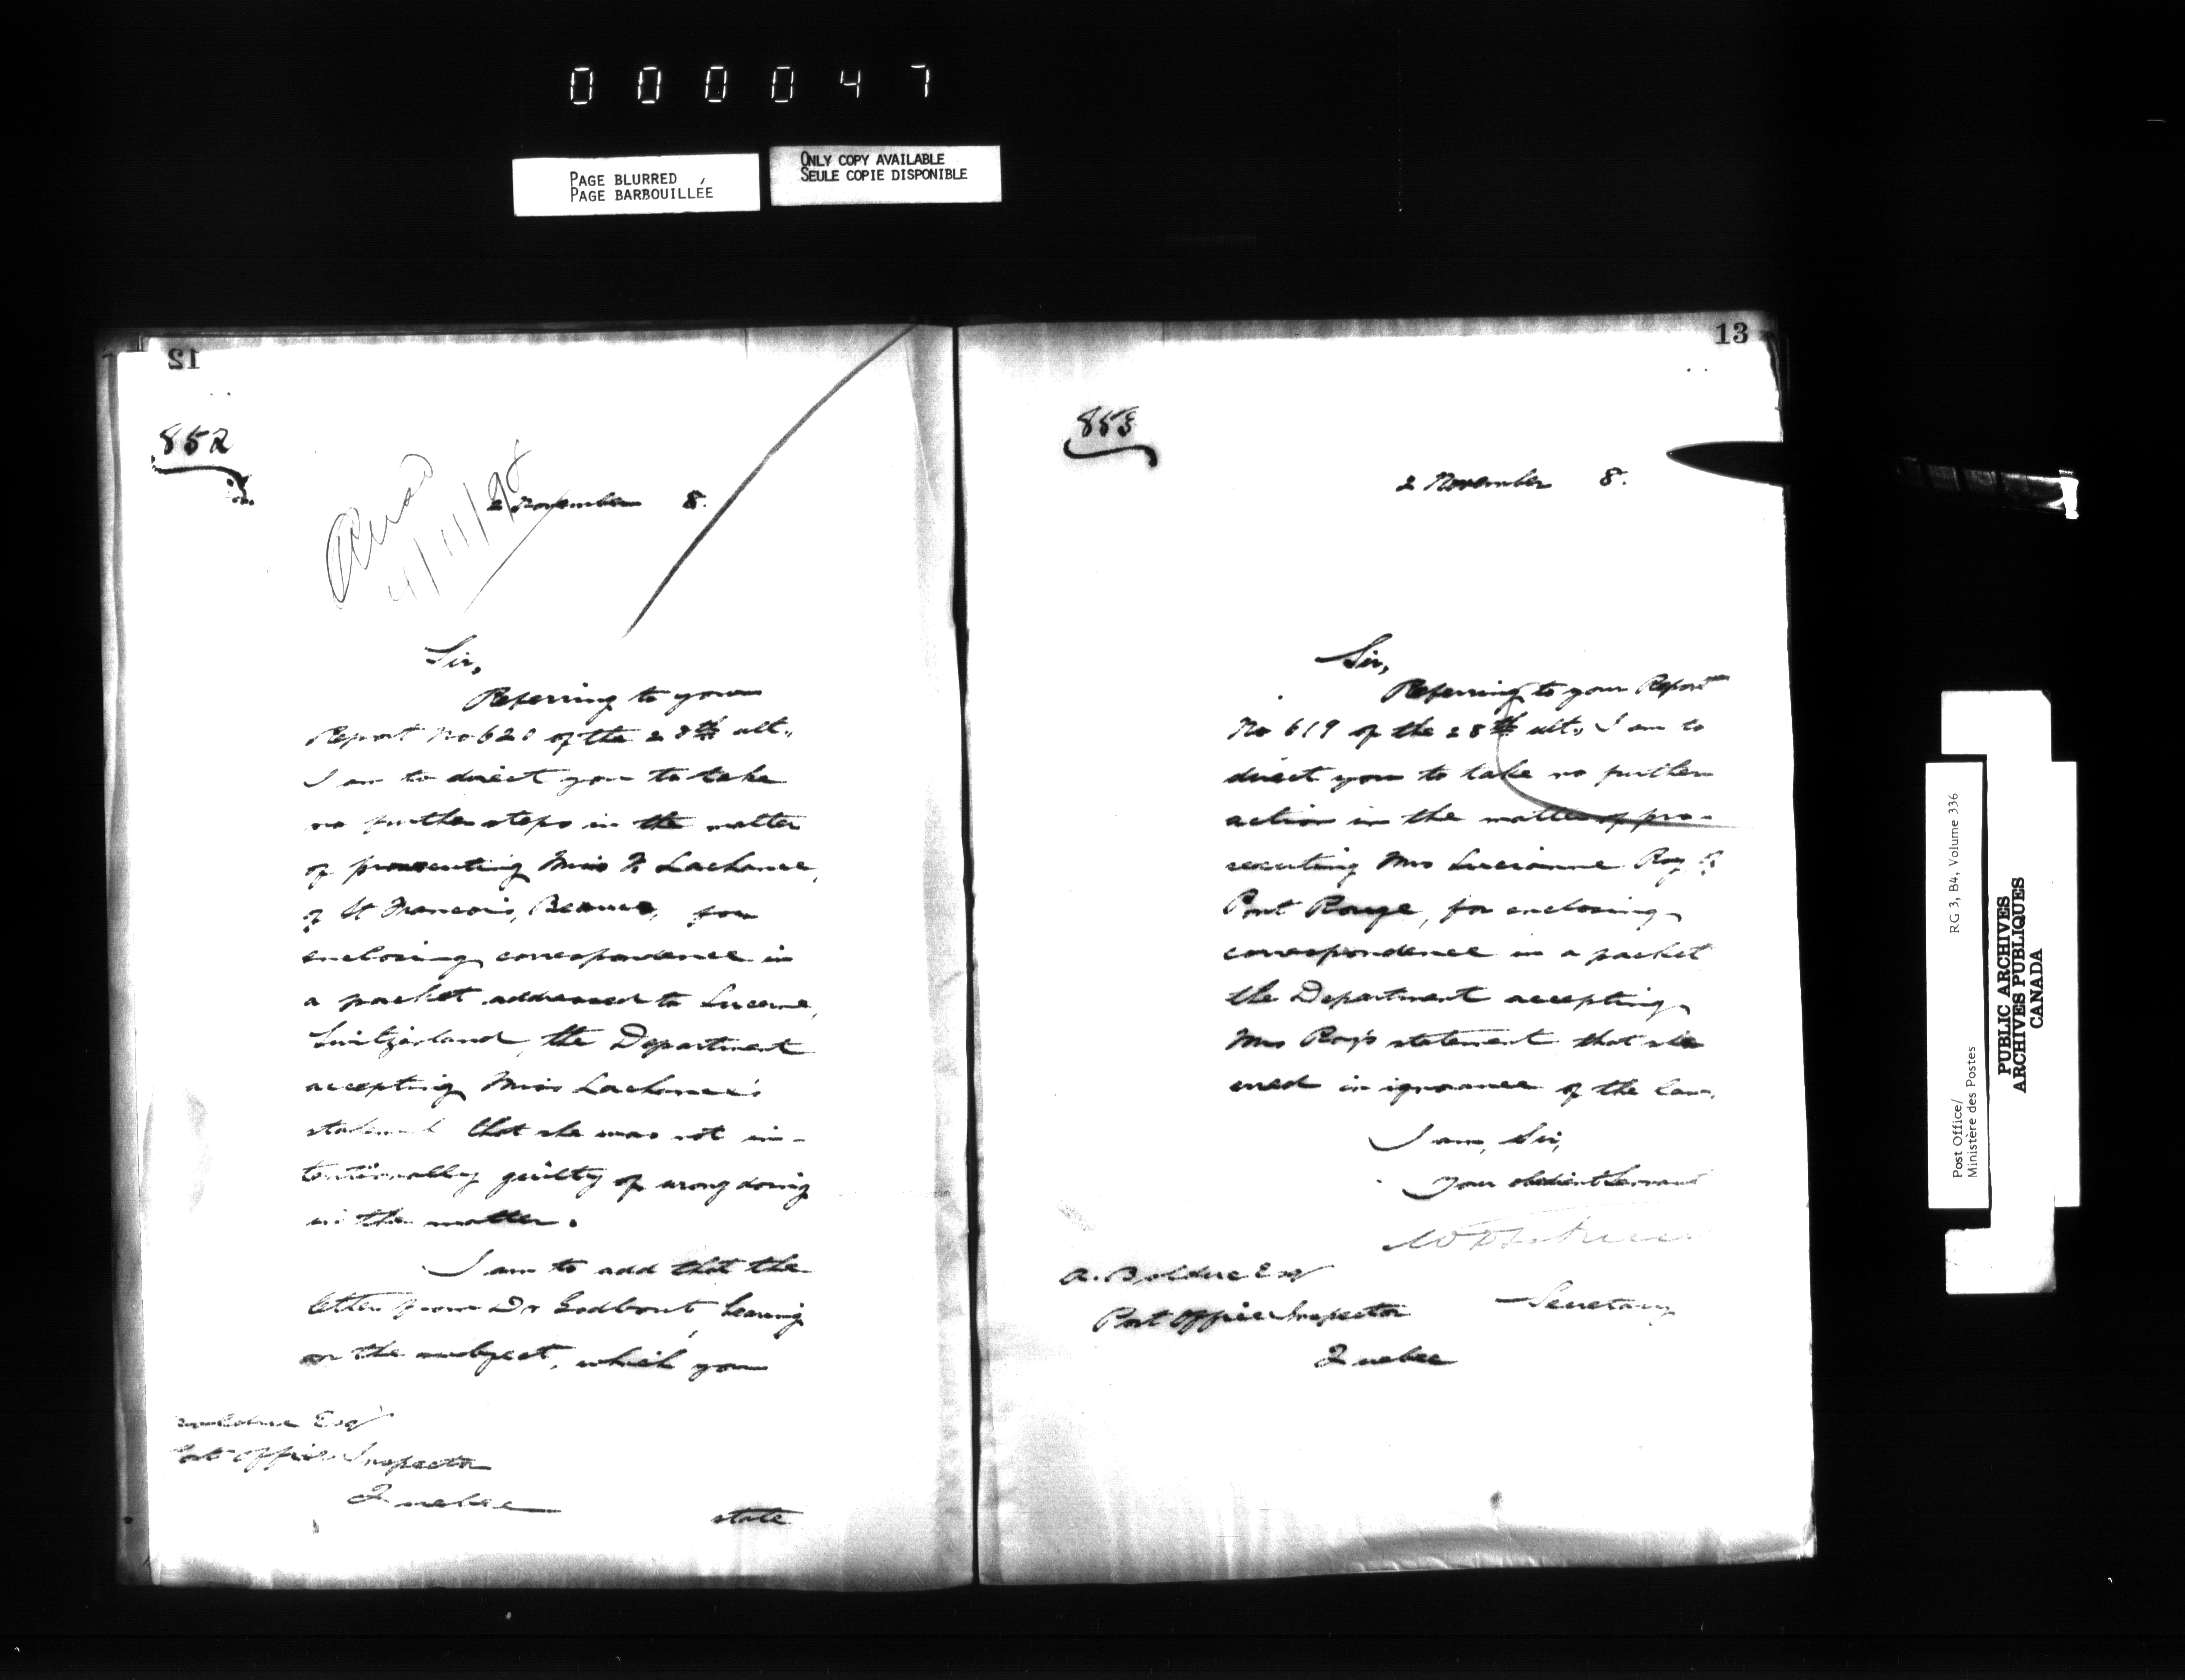 000047
PAGE BLURRED
PAGE BARBOUILLÉE
ONLY COPY AVAILABLE
SEULE COPIE DISPONIBLE
12
852
2 November 8.
Sir,
Referring to your
Report No 620 of the 28th ult.,
I am to direct you to take
no further steps in the matter
of prosecuting Miss Lachance,
of St Francois, Beauce, for
enclosing correspondence in
a packet addressed to Lucerne,
Switzerland, the Department
accepting Miss Lachance's
statement that she was not in-
tentionally guilty of wrong doing
in the matter.
I am to add that the
letter from Dr Godbout, bearing
on the subject, which you
Esqr
Post Office Inspector
Quebec
state
13
853
2 November 8.
Sir,
Referring to your Report
No 619 of the 28th ult., I am to
direct you to take no further
action in the matter of pro-
secuting Mrs Lucianne Roy of
Pont Rouge, for enclosing
correspondence in a packet
the Department accepting
Mrs Roy's statement that she
erred in ignorance of the law.
I am, Sir,
Your obedient Servant
A. Bolduc Esqr
Secretary
Post Office Inspector
Quebec
Post Office/
Ministère des Postes
RG 3, B4, Volume 336
PUBLIC ARCHIVES
ARCHIVES PUBLIQUES
CANADA